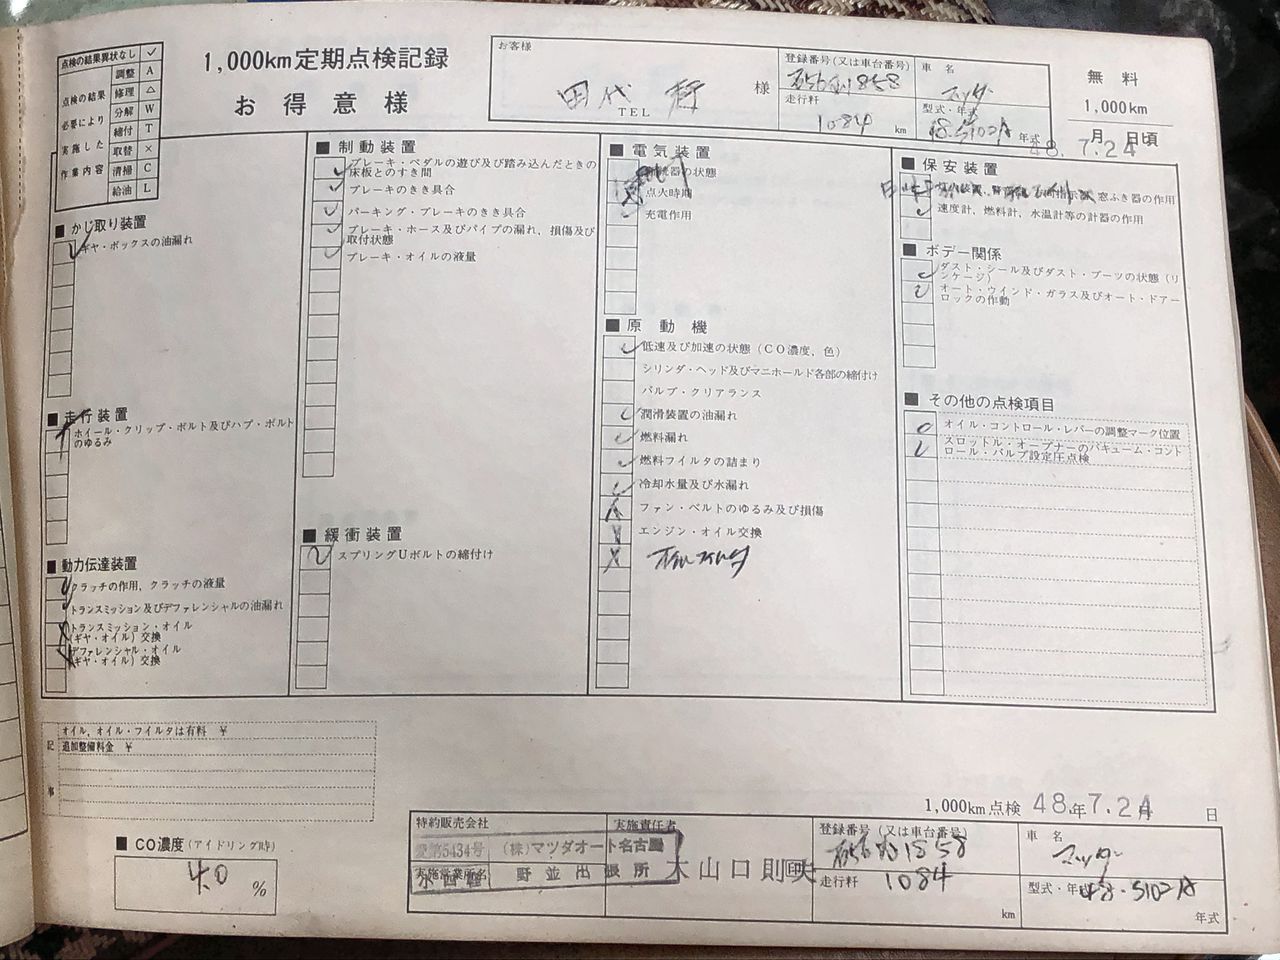 1,000km定期点検記録
お得意様
点検の結果異状なし ✓
点検の結果必要により実施した作業内容
調整 A
修理 △
分解 W
締付 T
取替 ×
清掃 C
給油 L
お客様
田代 様
TEL
登録番号(又は車台番号)
1858
走行粁
1084 km
車名
マツダ
型式・年式
48.S102A 年式
無料
1,000km
月 日頃
48.7.24
■かじ取り装置
ギヤ・ボックスの油漏れ
■走行装置
ホイール・クリップ・ボルト及びハブ・ボルト
のゆるみ
■動力伝達装置
クラッチの作用，クラッチの液量
トランスミッション及びデファレンシャルの油漏れ
トランスミッション・オイル
(ギヤ・オイル)交換
デファレンシャル・オイル
(ギヤ・オイル)交換
■制動装置
ブレーキ・ペダルの遊び及び踏み込んだときの
床板とのすき間
ブレーキのきき具合
パーキング・ブレーキのきき具合
ブレーキ・ホース及びパイプの漏れ，損傷及び
取付状態
ブレーキ・オイルの液量
■緩衝装置
スプリングUボルトの締付け
■電気装置
の状態
点火時期
充電作用
■原動機
低速及び加速の状態（CO濃度，色）
シリンダ・ヘッド及びマニホールド各部の締付け
バルブ・クリアランス
潤滑装置の油漏れ
燃料漏れ
燃料フイルタの詰まり
冷却水量及び水漏れ
ファン・ベルトのゆるみ及び損傷
エンジン・オイル交換
オイルフイルタ
■保安装置
窓ふき器の作用
速度計，燃料計，水温計等の計器の作用
■ボデー関係
ダスト・シール及びダスト・ブーツの状態（リ
ンケージ）
オート・ウインド・ガラス及びオート・ドアー
ロックの作動
■その他の点検項目
オイル・コントロール・レバーの調整マーク位置
スロットル・オープナーのバキューム・コント
ロール・バルブ設定圧点検
記事
オイル，オイル・フイルタは有料 ¥
追加整備料金 ¥
■CO濃度(アイドリング時)
4.0 %
1,000km点検 48年7.24月 日
特約販売会社
愛第5434号 (株)マツダオート名古屋
実施営業所名
野並出張所
実施責任者
木山口則夫
登録番号（又は車台番号）
1858
走行粁
1084
km
車名
マツダ
型式・年
48.S102A
年式